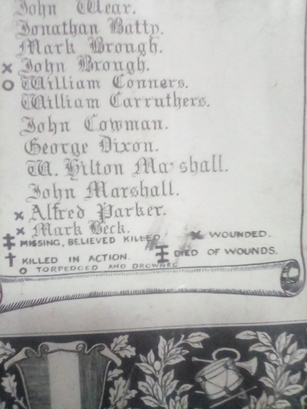 John Wear.
Jonathan Batty.
Mark Brough.
× John Brough.
O William Conners.
William Carruthers.
John Cowman.
George Dixon.
W. Hilton Marshall.
John Marshall.
× Alfred Parker.
× Mark Beck.
‡ MISSING, BELIEVED KILLED × WOUNDED.
† KILLED IN ACTION. ‡ DIED OF WOUNDS.
O TORPEDOED AND DROWNED